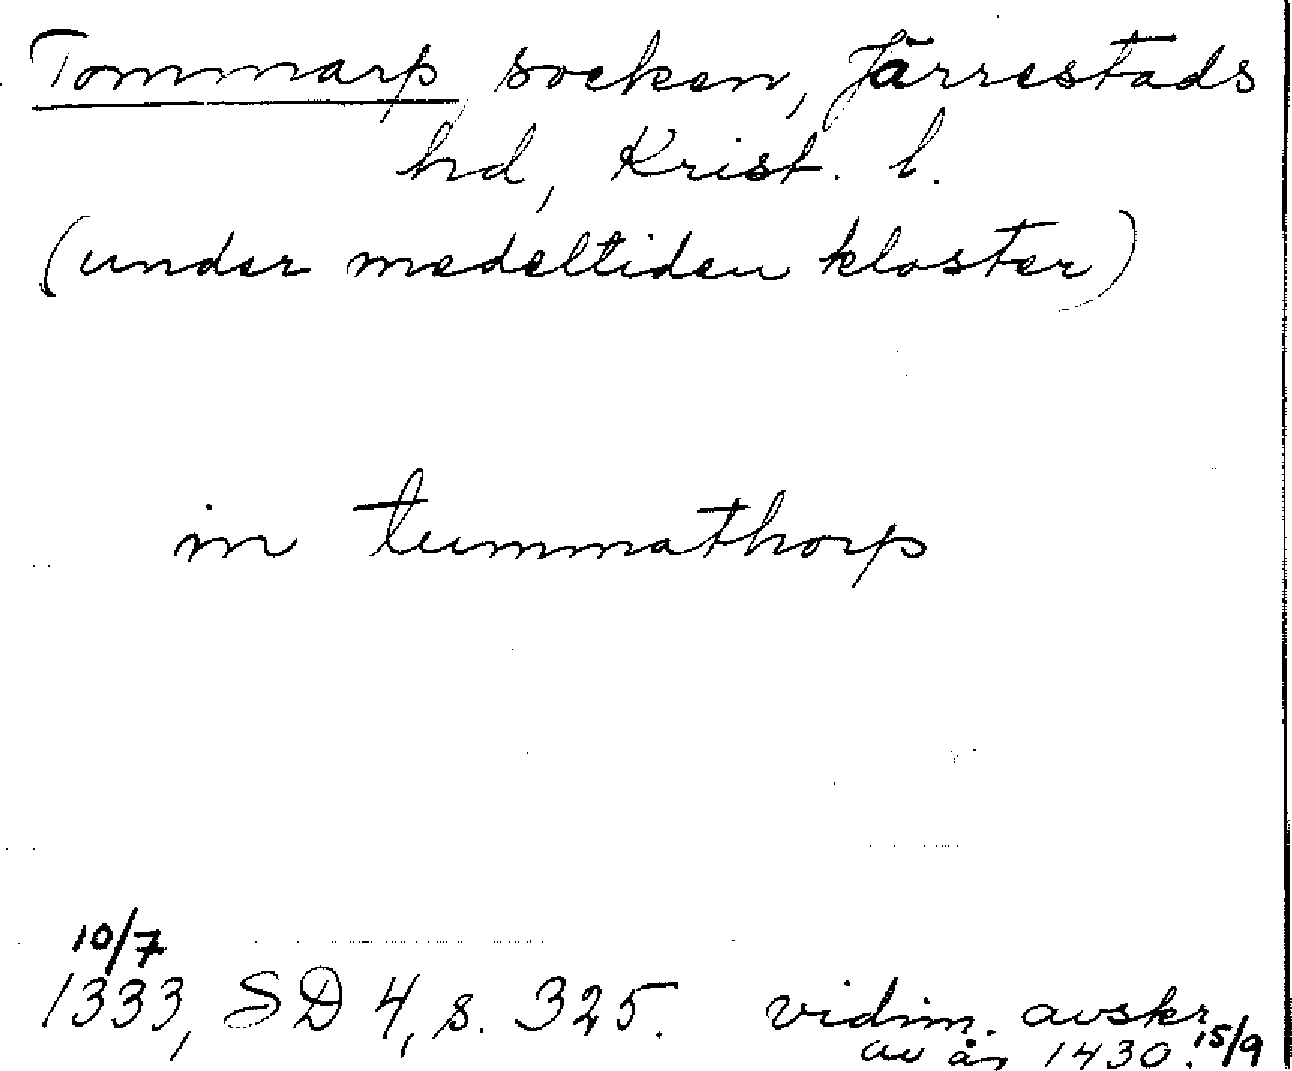 Tommarp socken, Järrestads
hd, Krist. l.
(under medeltiden kloster)
in tummathorp
10/7
1333, SD 4, s. 325. vidim. avskr.
av år 1430. 15/9